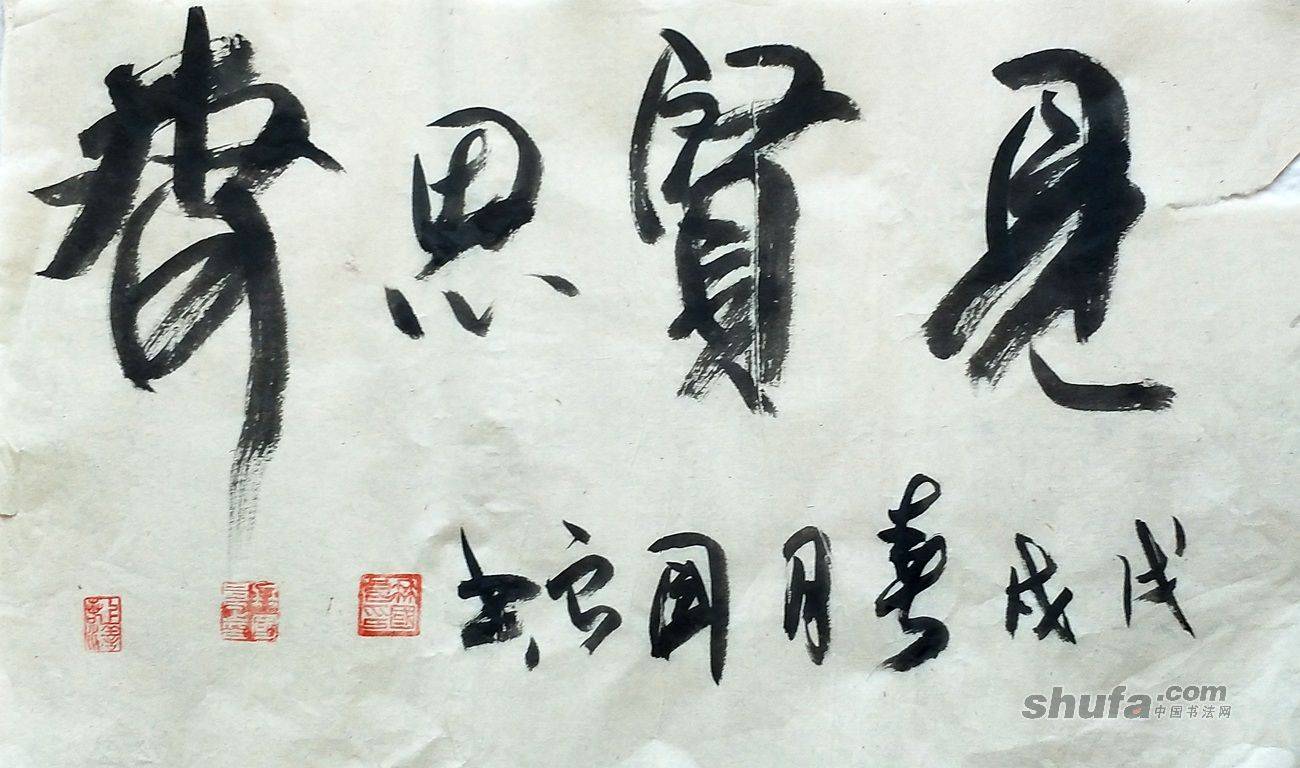 見賢思齊
戊戌春月國良书
shufa.com
中国书法网